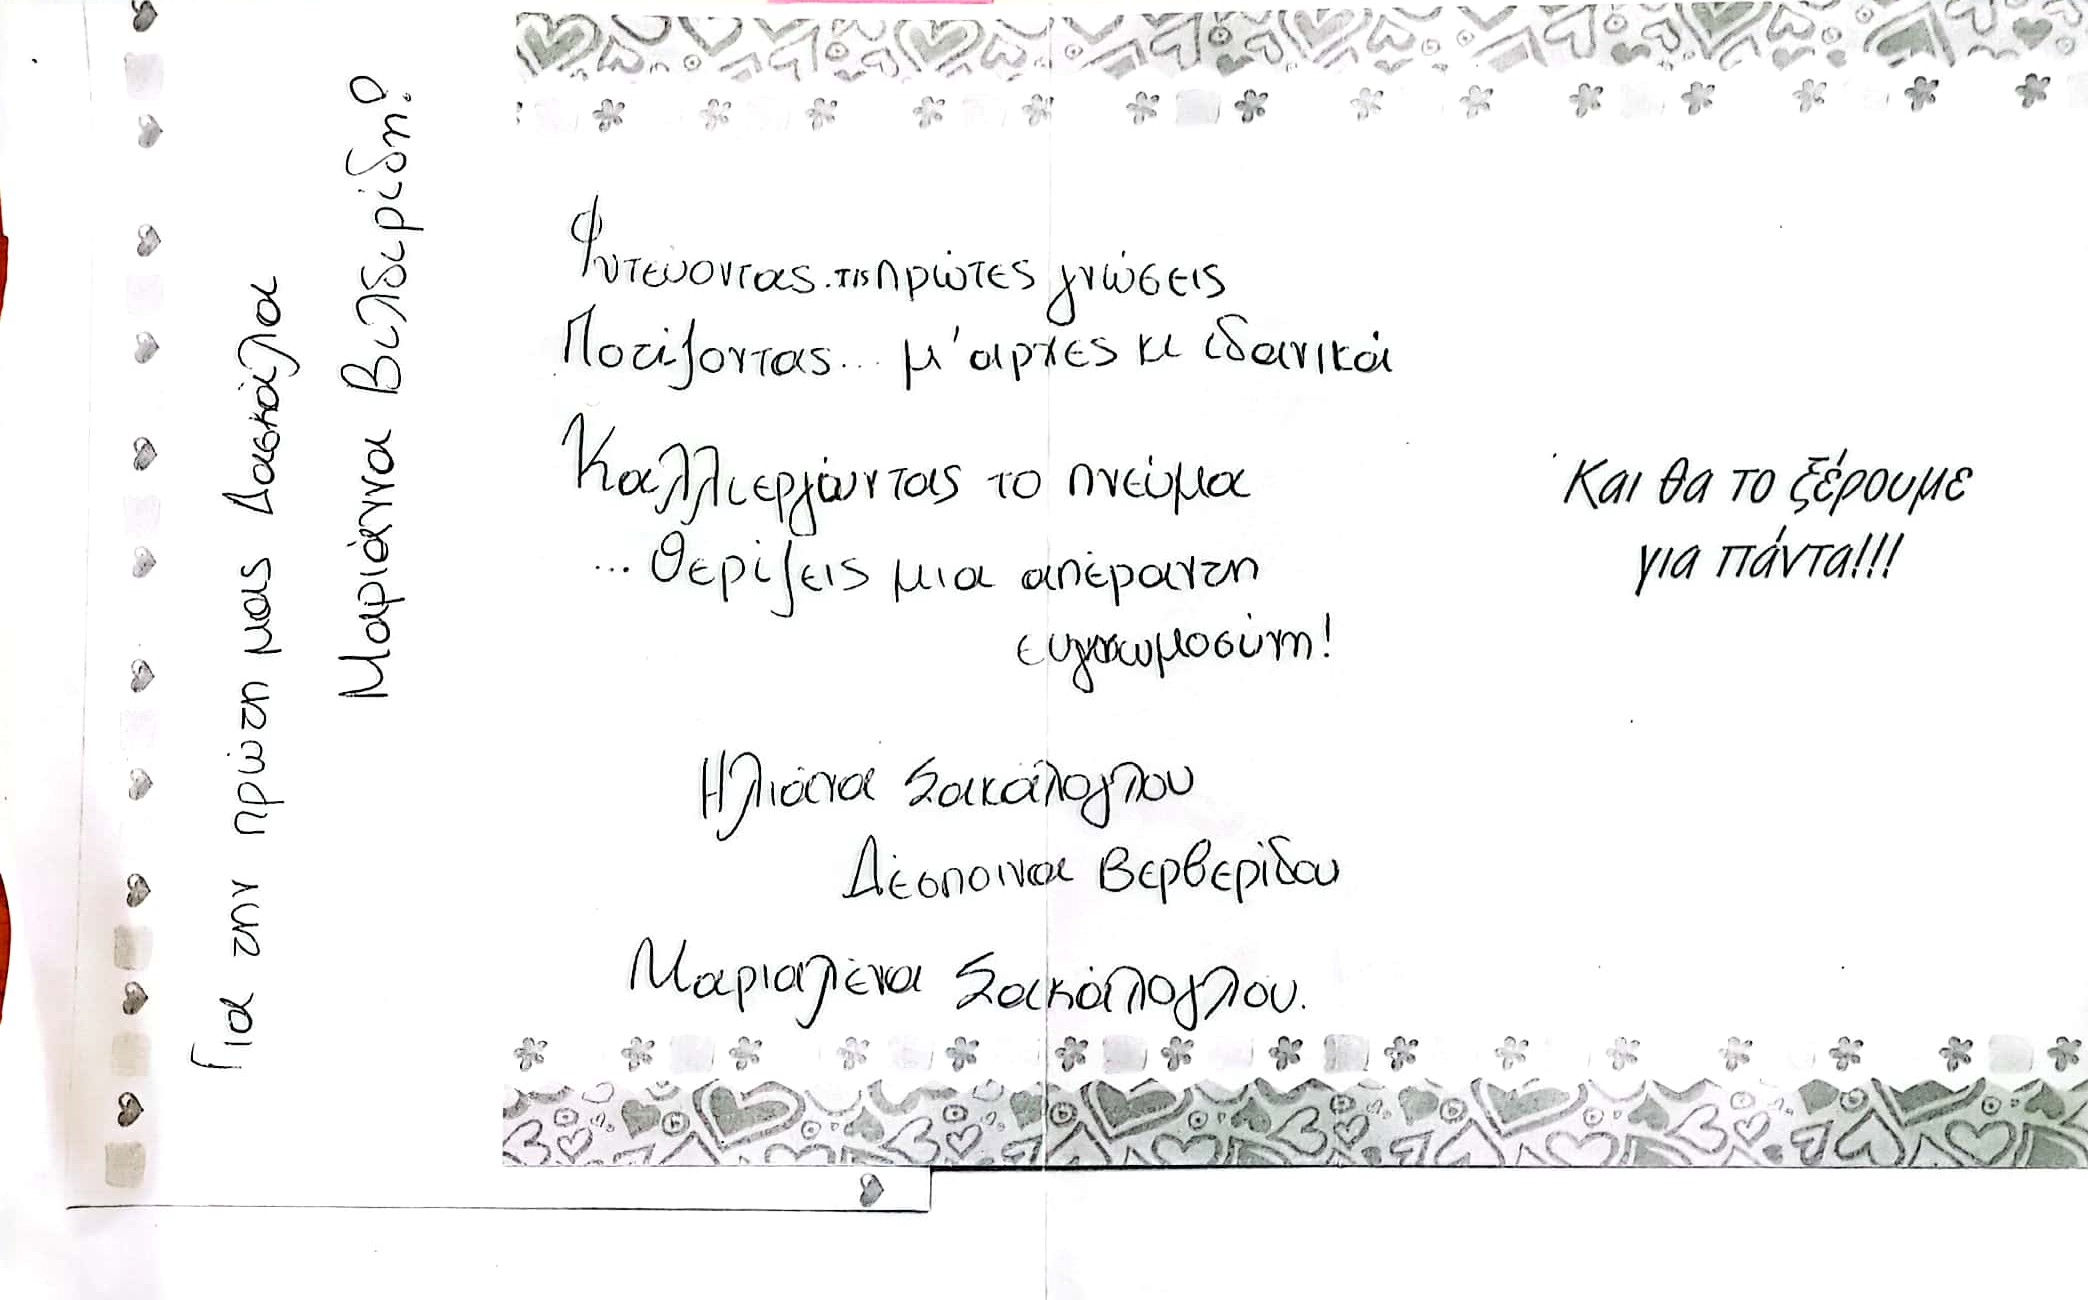 Για την πρώτη μας Δασκάλα
Μαριάννα Βιλδιρίδη!
Φυτεύοντας.τις πρώτες γνώσεις
Ποτίζοντας... μ' αρχές κι ιδανικά
Καλλιεργώντας το πνεύμα
... Θερίζεις μια απέραντη
ευγνωμοσύνη!
Ηλιάνα Σακάλογλου
Δέσποινα Βερβερίδου
Μαριαλένα Σακάλογλου.
Και θα το ξέρουμε
για πάντα!!!